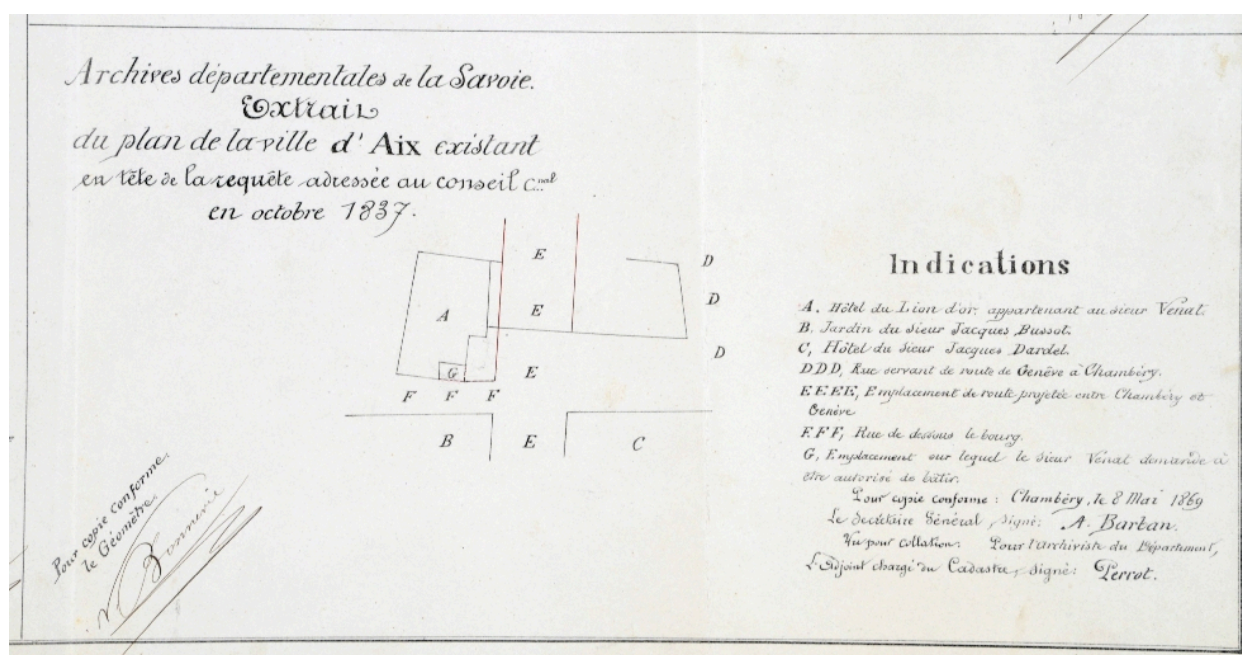 Archives départementales de la Savoie.
Extrait
du plan de la ville d'Aix existant
en tête de la requête adressée au conseil C.nal
en octobre 1837.
E
D
A
E
D
D
G
E
F F F
B
E
C
Indications
A. Hôtel du Lion d'or, appartenant au sieur Venat.
B. Jardin du sieur Jacques Bussot.
C, Hôtel du sieur Jacques Dardel.
DDD, Rue servant de route de Genève à Chambéry.
EEEE, Emplacement de route projetée entre Chambéry et
Genève
F.F.F, Rue de dessous le bourg.
G, Emplacement sur lequel le sieur Venat demande à
être autorisé de bâtir.
Pour copie conforme : Chambéry, le 8 Mai 1869
Le Secrétaire Général, signé: A. Barban.
Vu pour collation. Pour l'archiviste du Département,
L'Adjoint chargé du Cadastre, signé: Perrot.
Pour copie conforme.
le Géomètre.